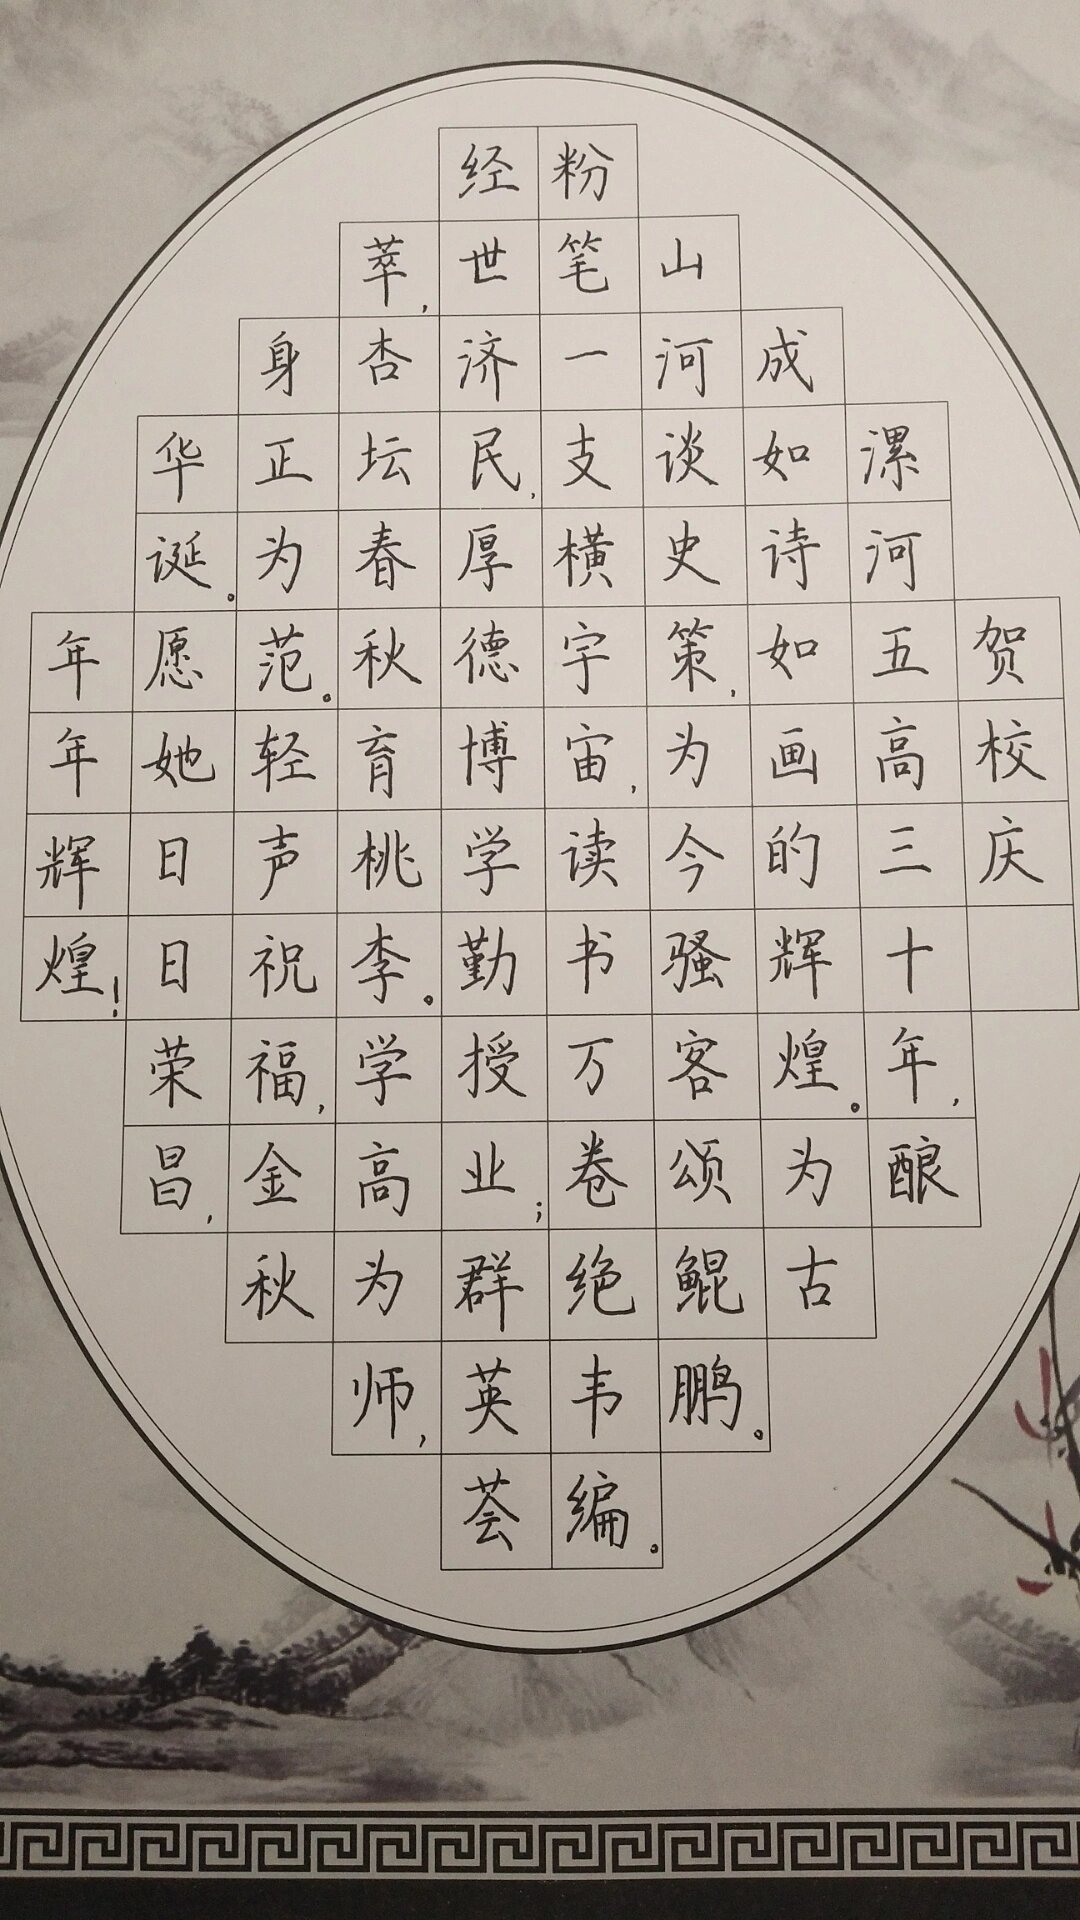 贺校庆
漯河五高三十年，酿
成如诗如画的辉煌。为古
山河谈史策，为今骚客颂鲲鹏。
粉笔一支横宇宙，读书万卷绝韦编。
经世济民，厚德博学勤授业；群英荟
萃，杏坛春秋育桃李。学高为师，
身正为范。轻声祝福，金秋
华诞。愿她日日荣昌，
年年辉煌！